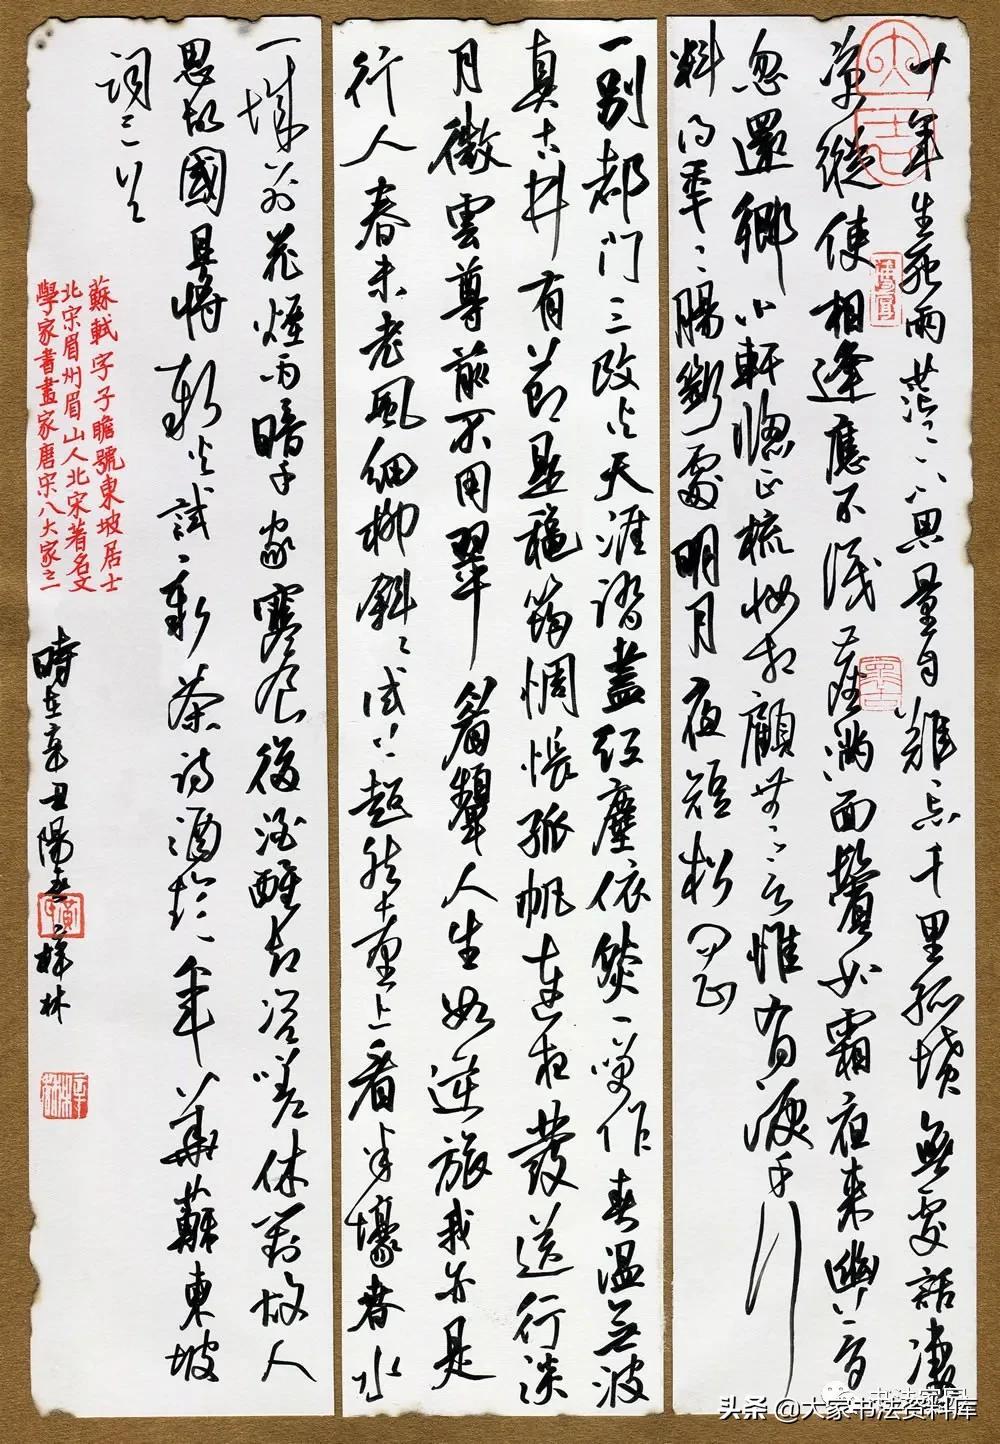 十年生死兩茫〻不思量自難忘千里孤墳無處話凄
涼縱使相逢應不識塵滿面鬢如霜夜來幽夢
忽還鄉小軒窗正梳妝相顧無〻言惟有淚千行
料得年〻腸斷處明月夜短松岡
一別都門三改火天涯踏盡紅塵依然一笑作春溫無波
真古井有節是秋筠惆悵孤帆連夜發送行淡
月微雲尊前不用翠眉顰人生如逆旅我亦是
行人春未老風細柳斜〻試上超然臺上看半壕春水
一城花烟雨暗千家寒食後酒醒却咨嗟休對故人
思故國且將新火試〻新茶詩酒趁年華蘇東坡
詞三首
蘇軾字子瞻號東坡居士
北宋眉州眉山人北宋著名文
學家書畫家唐宋八大家之一
時在辛丑陽春祥林
头条 @大家书法资料库